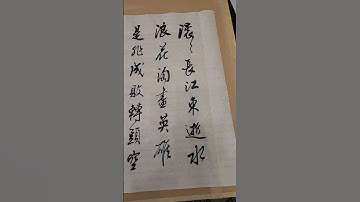 滾〻長江東逝水
浪花淘盡英雄
是非成敗轉頭空